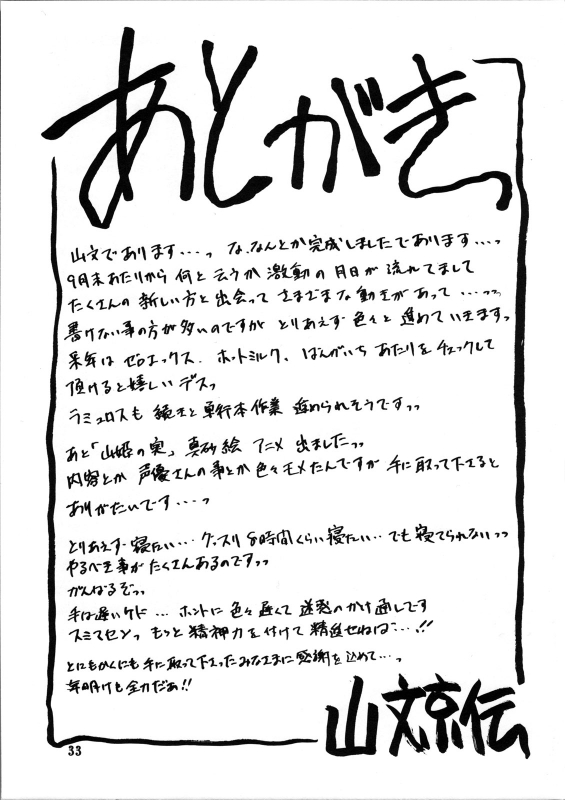 あとがきっ
山文であります・・・っ な、なんとか完成しましたであります・・・っ
9月末あたりから 何と云うか 激動の月日が流れてまして
たくさんの 新しい方と出会って さまざまな動きがあって・・・っっ
書けない事の方が多いのですが とりあえず 色々と 進めていきますっ
来年は ゼロエックス、ホットミルク、ばんがいち あたりを チェックして
頂けると嬉しい デスっ
ラミュロスも 続きと単行本作業 進められそうですっっ
あと「山姫の実」真砂絵 アニメ 出ましたっっ
内容とか 声優さんの事とか色々モメたんですが 手に取って下さると
ありがたいです・・・っ
とりあえず 寝たい・・・ グッスリ 8時間くらい寝たい・・・でも寝てられないっっ
やるべき事が たくさんあるのですっっ
がんばるぞっっ
手は遅いケド・・・ ホントに 色々 遅くて 迷惑のかけ通しです
スミマセンっ もっと 精神力を付けて 精進せねば・・・!!
とにもかくにも 手に取って下さったみなさまに 感謝を込めて・・・っ
年明けも全力だぁ!!
山文京伝
33